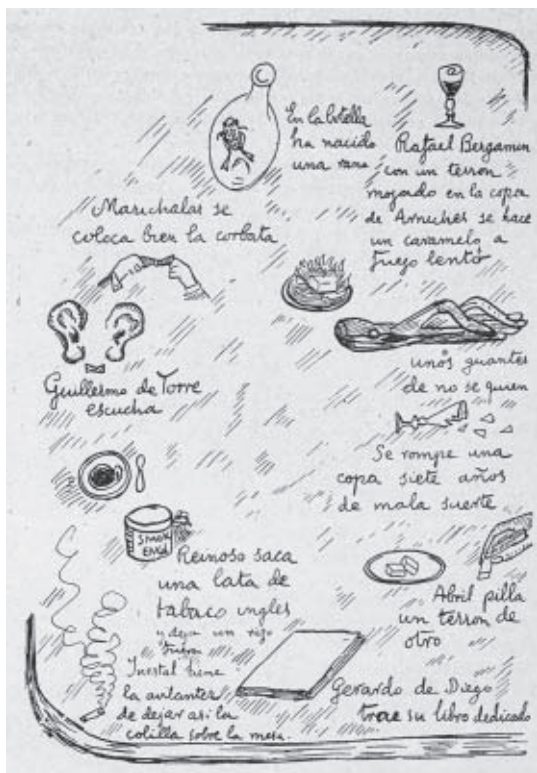 En la botella
ha nacido
una rana
Rafael Bergamin
con un terron
mojado en la copa
de Arniches se hace
un caramelo a
fuego lento
Marichalar se
coloca bien la corbata
Guillermo de Torre
escucha
unos guantes
de no se quien
Se rompe una
copa siete años
de mala suerte
SMOK
ENGL
Reinoso saca
una lata de
tabaco ingles
y deja un
fuera
Abril pilla
un terron de
otro
tiene
la
de dejar asi la
colilla sobre la mesa.
Gerardo de Diego
trae su libro dedicado